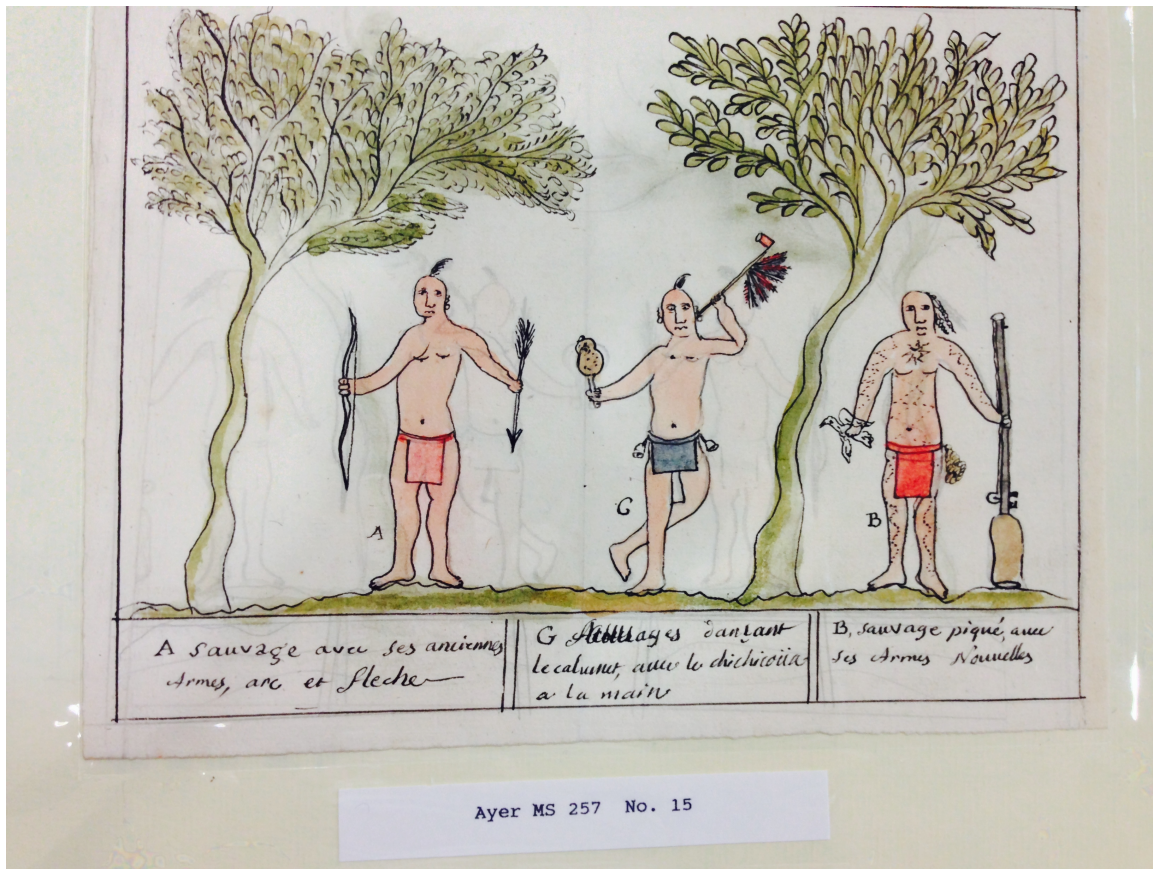 A
G
B
A sauvage avec ses anciennes
Armes, arc et fleche
G dançant
le calumet, avec le chichicoüa
a la main
B, sauvage piqué, avec
ses Armes Nouvelles
Ayer MS 257 No. 15